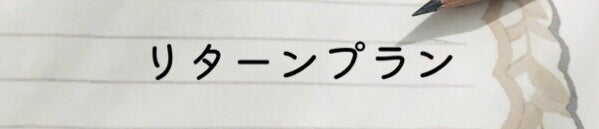 リターンプラン